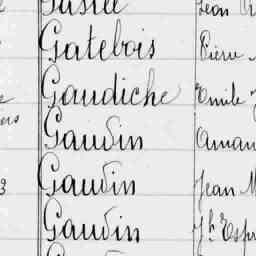 Gatebois Pierre
Gaudiche Emile
Gaudin Aman
Gaudin Jean M
Gaudin Jh Espr